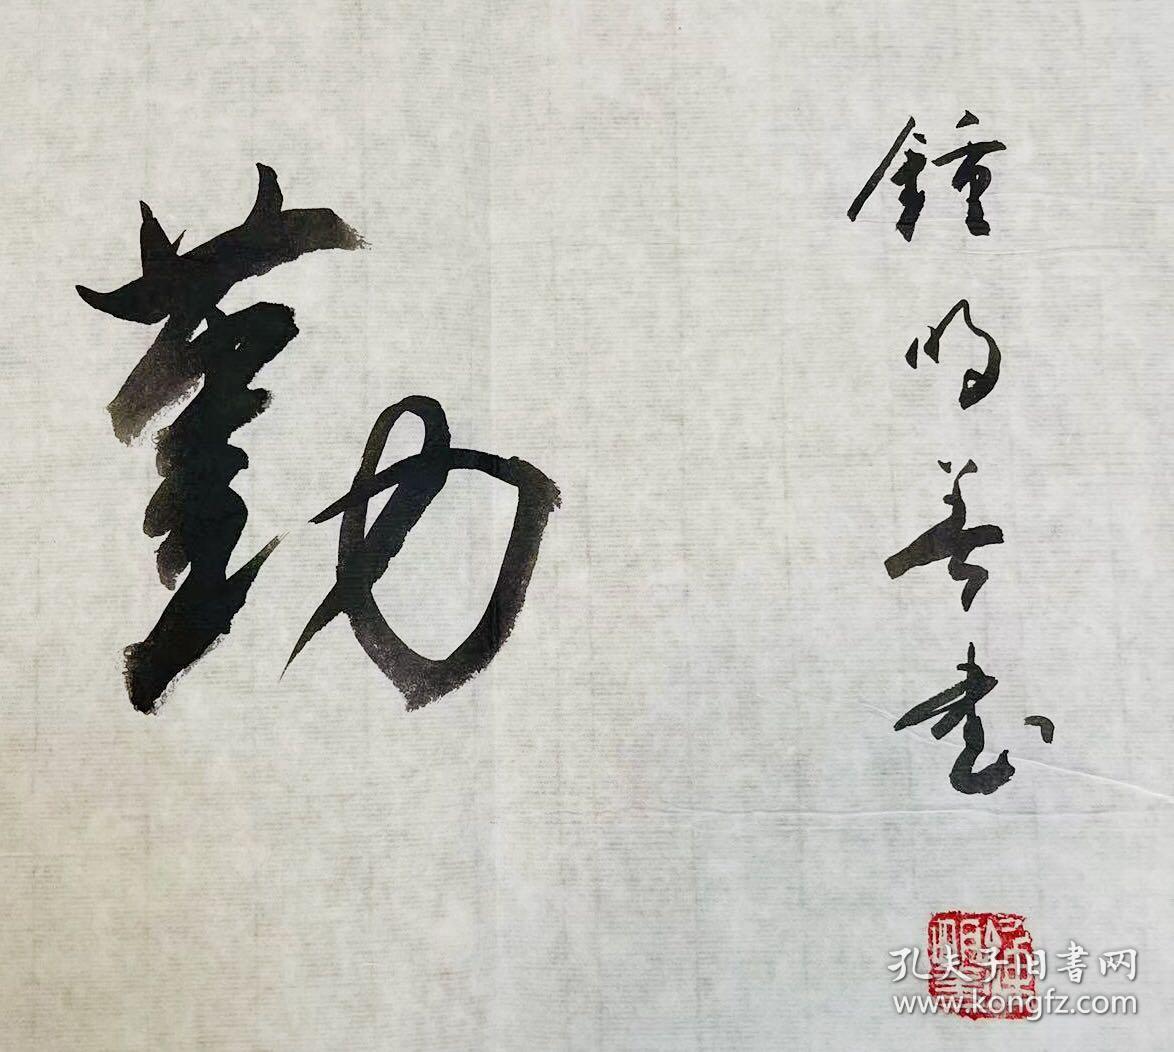 勤
鍾明善书
孔夫子旧书网
www.kongfz.com